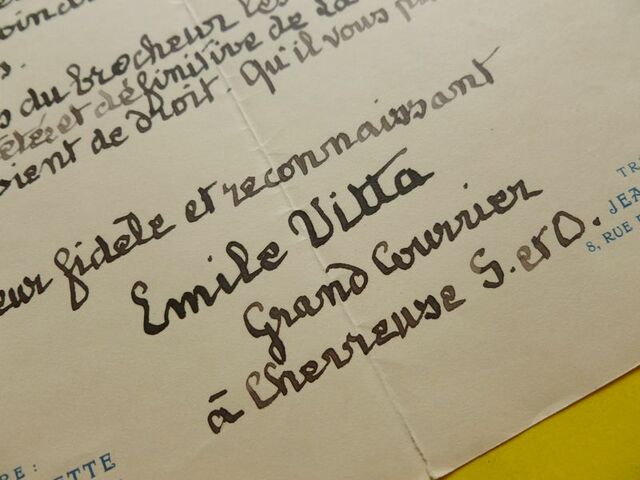 s.
s du brocheur les
et définitive de la
vient de droit. Qu'il vous p
eur fidèle et reconnaissant
Emile Vitta
Grand Courrier
à Chevreuse S. et O.
TR
JEA
8, RUE
RE:
ETTE